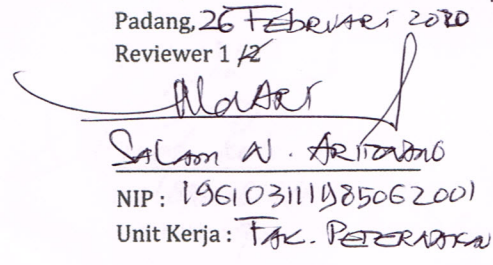 Padang, 26 Februari 2020
Reviewer 1/2
Salam N. Aritonang
NIP : 196103111985062001
Unit Kerja : Fak. Peternakan